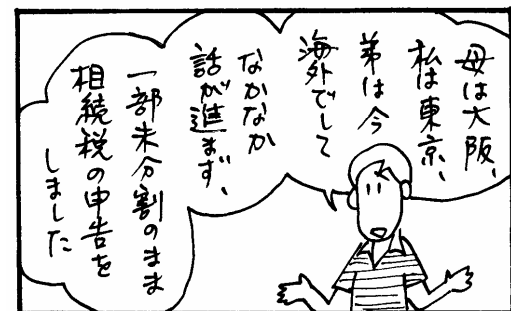 母は大阪、
私は東京、
弟は今
海外でして
なかなか
話が進まず、
一部未分割のまま
相続税の申告を
しました